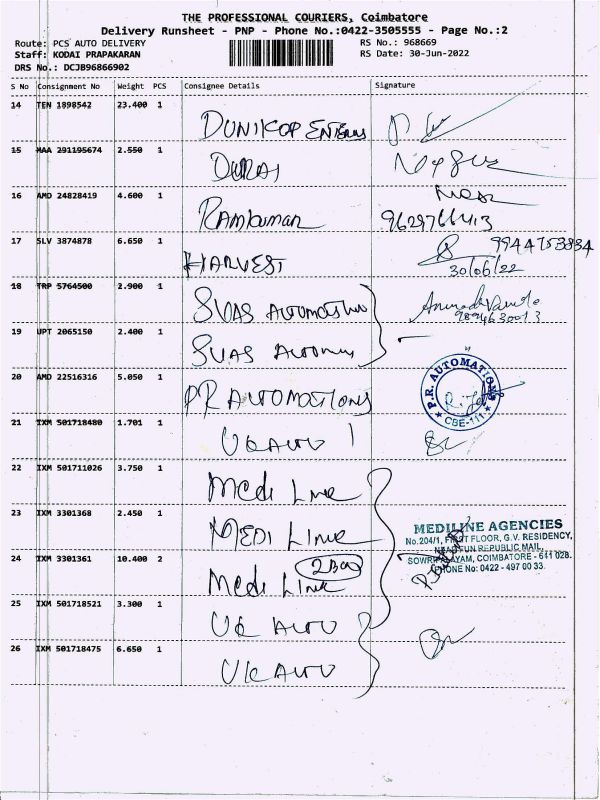 THE PROFESSIONAL COURIERS, Coimbatore
Delivery Runsheet - PNP - Phone No.:0422-3505555 - Page No.:2
Route: PCS AUTO DELIVERY RS No.: 968669
Staff: KODAI PRAPAKARAN RS Date: 30-Jun-2022
DRS No.: DCJB96866902
S No Consignment No Weight PCS Consignee Details Signature
14 TEN 1898542 23.400 1
15 MAA 291195674 2.550 1
DURAI
16 AMD 24828419 4.600 1
Ramkumar
17 SLV 3874878 6.650 1 9944753834
HARVEST
30/06/22
18 TRP 5764500 2.900 1
19 UPT 2065150 2.400 1
20 AMD 22516316 5.050 1
P.R. AUTOMATIONS
CBE-111
PR AUTOMOTIONS
21 IXM 501718480 1.701 1
UK AUTO 1
22 IXM 501711026 3.750 1
Medi Line
23 IXM 3301368 2.450 1
MEDI Line
MEDILINE AGENCIES
No.204/1, FIRST FLOOR, G.V. RESIDENCY,
NEAR FUN REPUBLIC MAIL,
SOWRIPALAYAM, COIMBATORE - 611 028.
PHONE No: 0422 - 497 00 33.
24 IXM 3301361 10.400 2
2 Bag
Medi Line
25 IXM 501718521 3.300 1
UK AUTO
26 IXM 501718475 6.650 1
UK AUTO